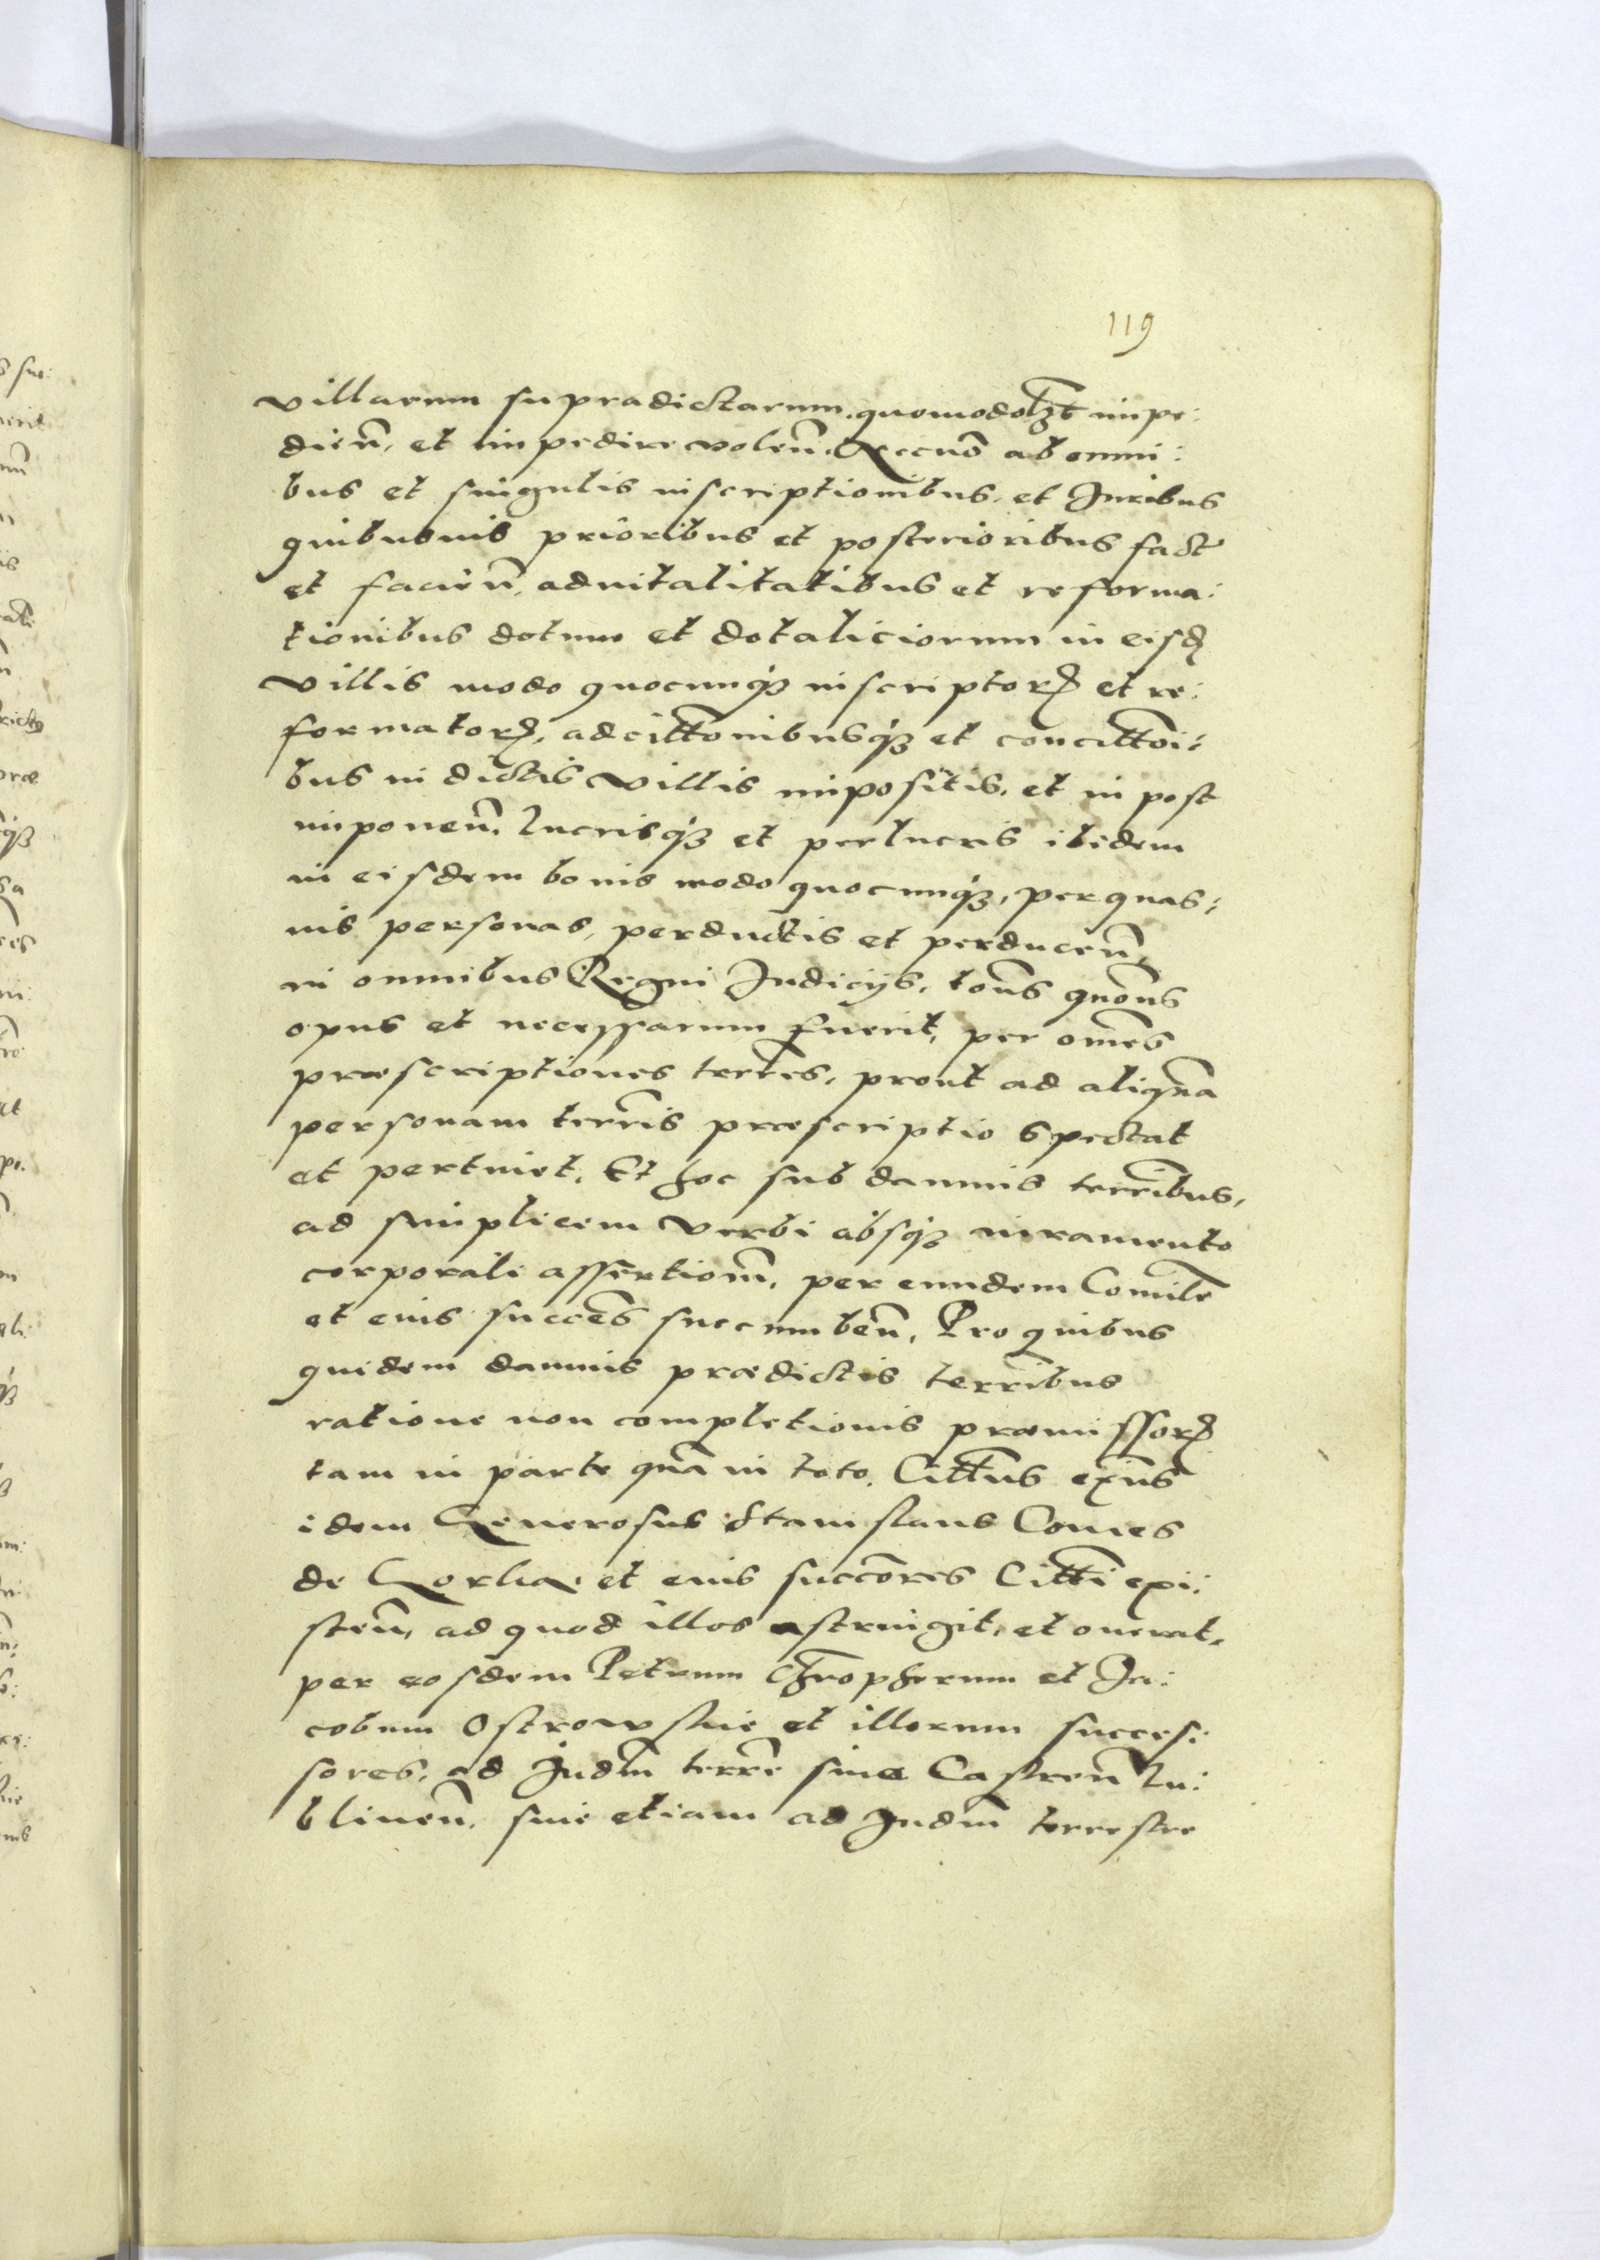 119
villarum supradictarum, quomodolzt impe:
dien̄, et impedire volen̄. Necnō ab omni:
bus et singulis inscriptionibus, et Iuribus
quibusuis prioribus et posterioribus fact
et facien̄, aduitalitatibus et reforma:
tionibus dotum et dotaliciorum in eisd
villis modo quocunqȝ inscriptorꝝ et re:
formatorꝝ, adcitt̄onibusqȝ et concitt̄oi:
bus in dictis villis impositis, et in post
imponen̄, lucrisqȝ et perlucris ibidem
in eisdem bonis modo quocunqȝ, per quas:
uis personas, perductis et perducen̄,
in omnibus Regni Iudicijs, tōns quōns
opus et necessarum fuerit, per om̄es
præscriptiones terr̄es, prout ad aliquā
personam terr̄is præscriptio spectat
et pertinet. Et hoc sub damnis terr̄ibus,
ad simplicem verbi absqȝ iuramento
corporali assertiōm, per eundem Comitē
et eius succēs succumben̄. Pro quibus
quidem damnis prædictis terr̄ibus
ratione non completionis præmissorꝝ
tam in parte quā in toto. Citt̄us exn̄s
idem Generosus Stanislaus Comes
de Gorka et eius succōres Citt̄i exi:
sten̄, ad quod illos astringit, et onerat,
per eosdem Petrum Chrōpherum et Ia:
cobum Ostrowskie et illorum succes:
sores, ad Iudm̄ terrē siue Castren̄ Lu:
blinen̄. siue etiam ad Iudm̄ terrestre